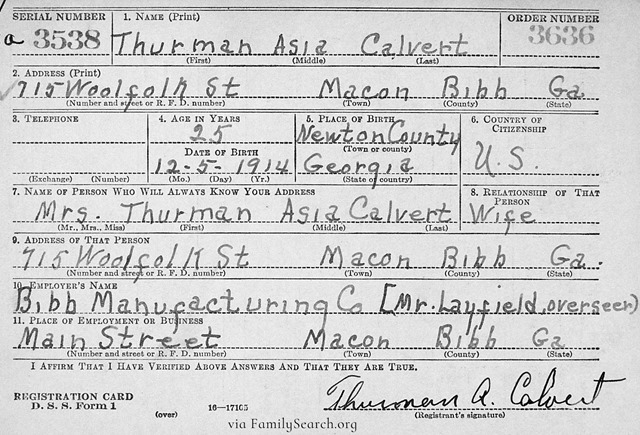 SERIAL NUMBER 1. NAME (Print) ORDER NUMBER
a 3538 Thurman Asia Calvert 3636
(First) (Middle) (Last)
2. ADDRESS (Print)
715 Woolfolk St Macon Bibb Ga
(Number and street or R. F. D. number) (Town) (County) (State)
3. TELEPHONE 4. AGE IN YEARS 5. PLACE OF BIRTH 6. COUNTRY OF CITIZENSHIP
25 Newton County
(Town or county)
DATE OF BIRTH U.S.
12-5-1914 Georgia
(Exchange) (Number) (Mo.) (Day) (Yr.) (State or country)
7. NAME OF PERSON WHO WILL ALWAYS KNOW YOUR ADDRESS 8. RELATIONSHIP OF THAT PERSON
Mrs. Thurman Asia Calvert Wife
(Mr., Mrs., Miss) (First) (Middle) (Last)
9. ADDRESS OF THAT PERSON
715 Woolfolk St Macon Bibb Ga.
(Number and street or R. F. D. number) (Town) (County) (State)
10. EMPLOYER'S NAME
Bibb Manufacturing Co [Mr. Layfield, overseer)
11. PLACE OF EMPLOYMENT OR BUSINESS
Main Street Macon Bibb Ga
(Number and street or R. F. D. number) (Town) (County) (State)
I AFFIRM THAT I HAVE VERIFIED ABOVE ANSWERS AND THAT THEY ARE TRUE.
REGISTRATION CARD
D. S. S. Form 1 Thurman A. Calvert
(over) 16—17105 (Registrant's signature)
via FamilySearch.org